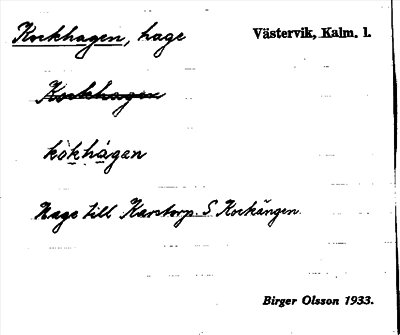 Korkhagen, hage Västervik, Kalm. l.
Korkhagen
kȯkhȧgan
Hage till Karstorp. S Korkängen.
Birger Olsson 1933.